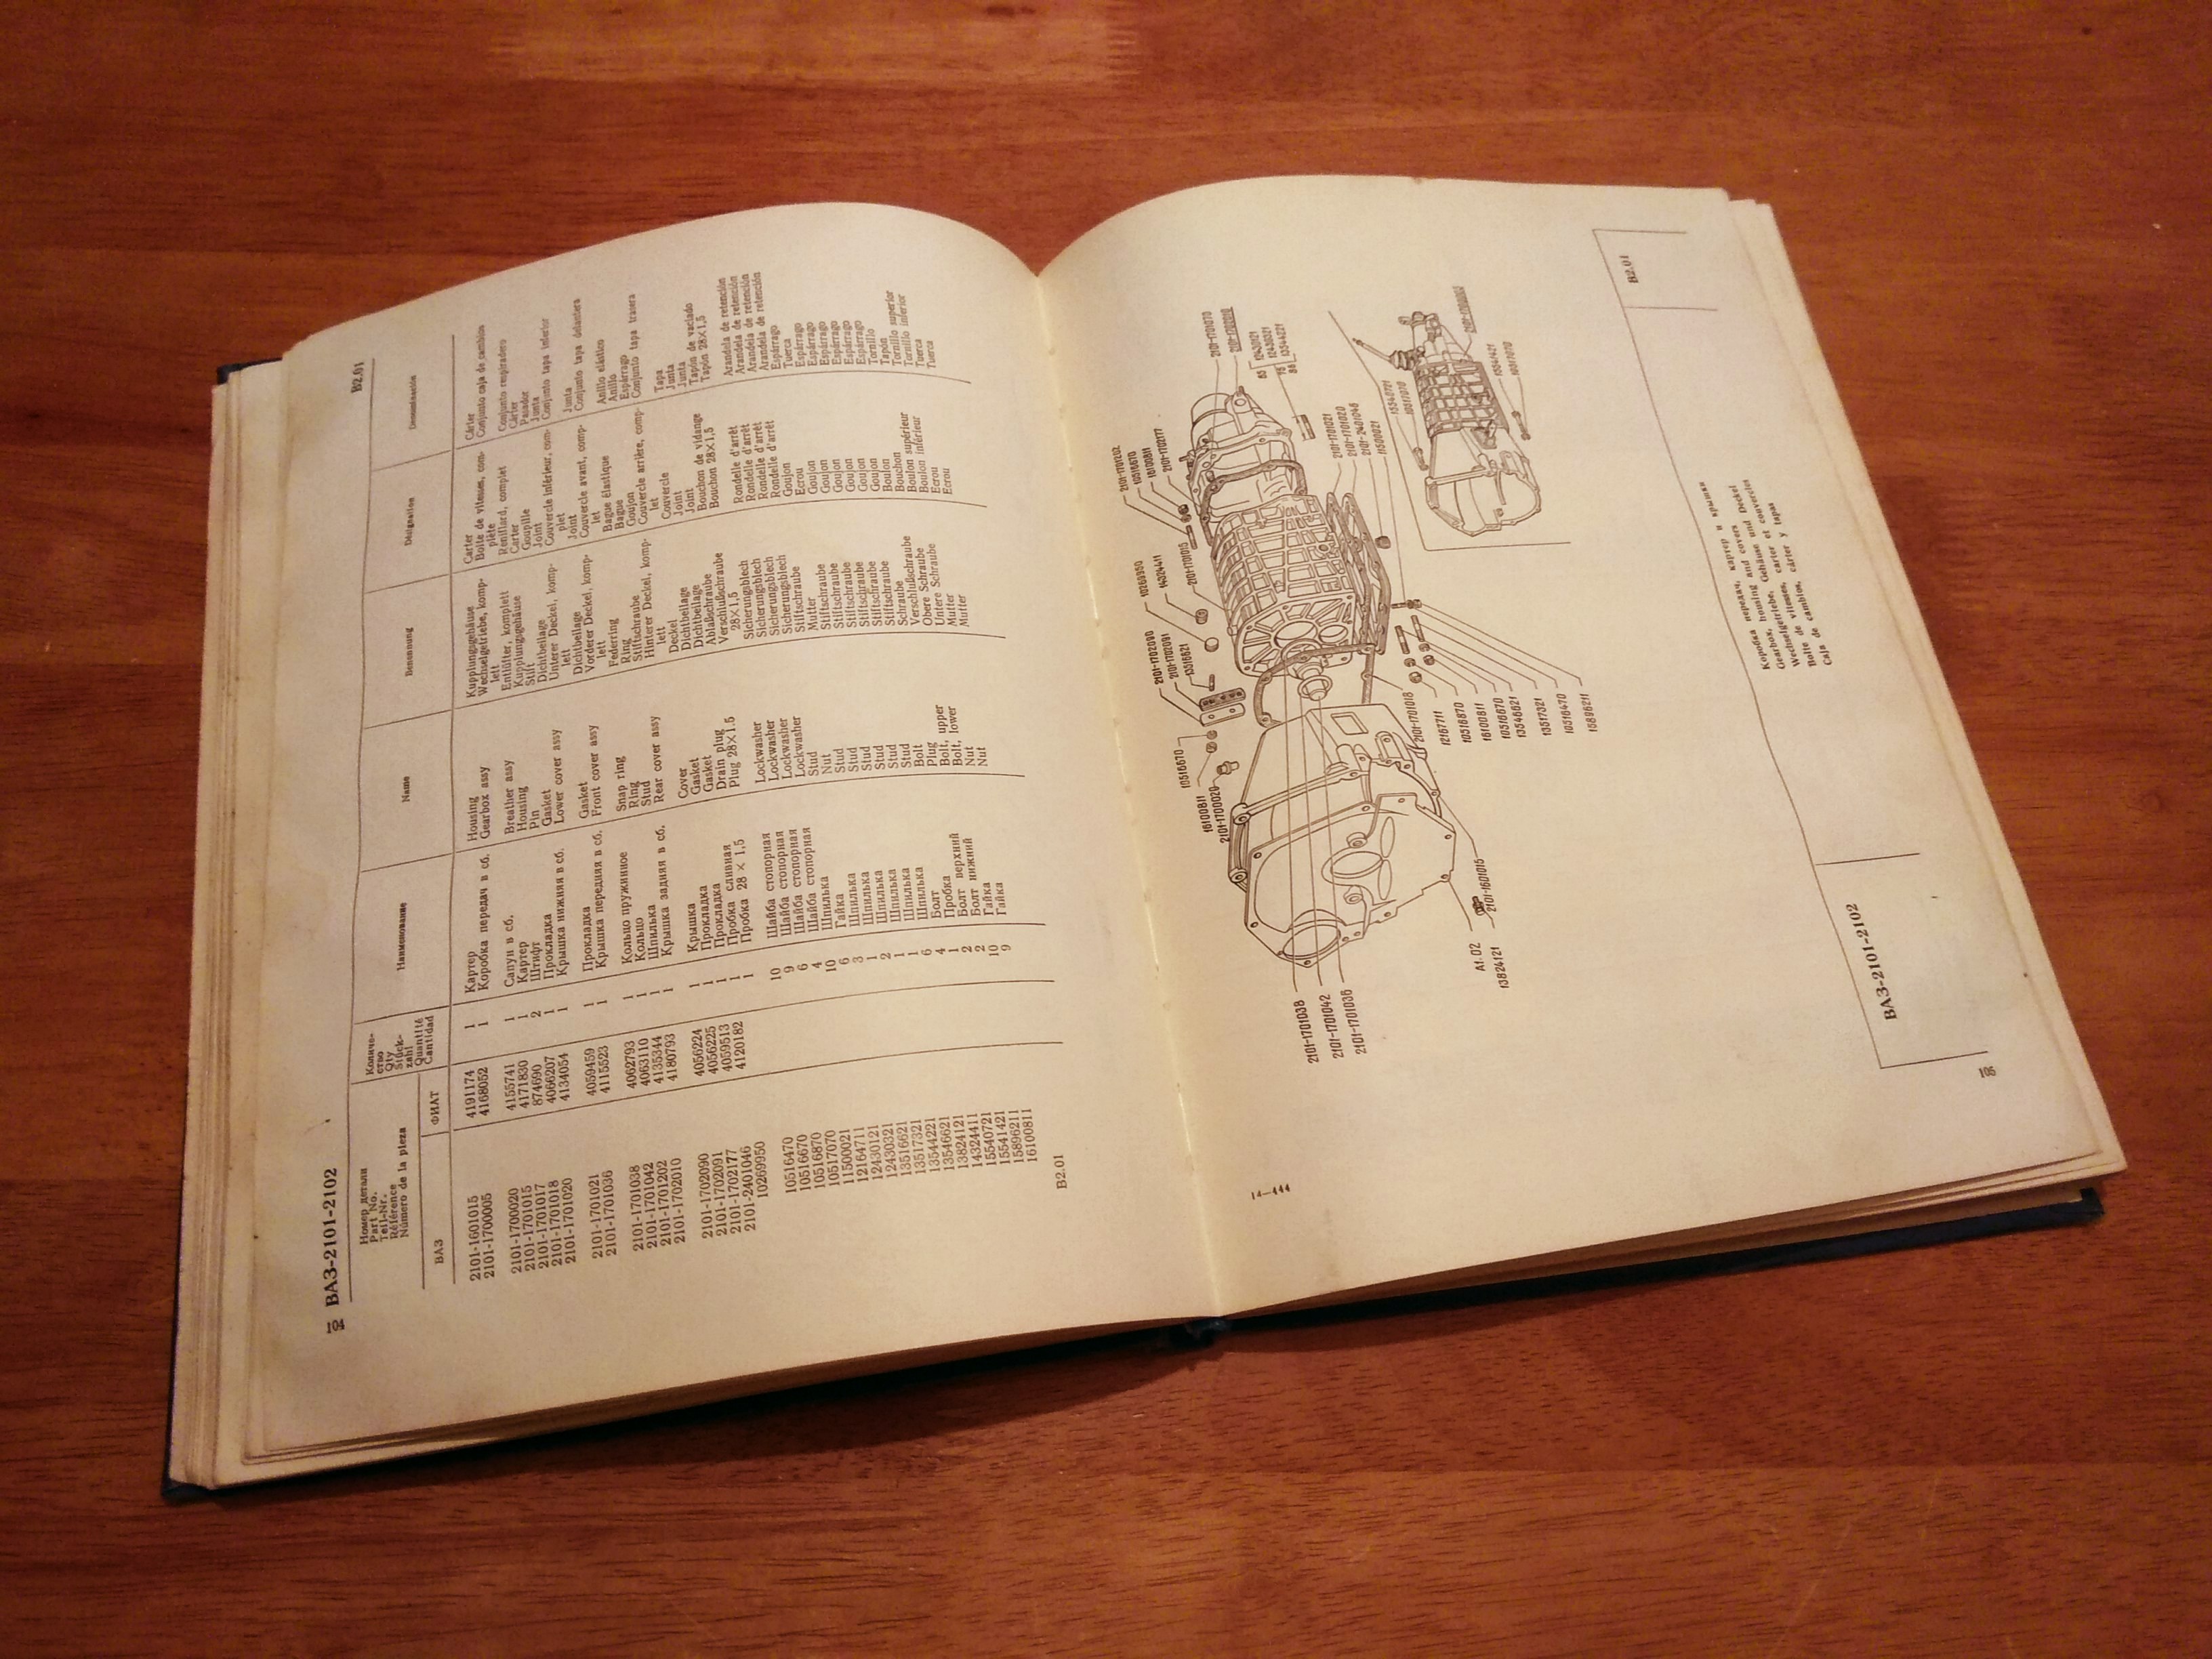 104 ВАЗ-2101-2102 В2.01
Номер детали
Part No.
Teil-Nr.
Référence
Número de la pieza
ВАЗ ФИАТ
Количе-
ство
Qty
Stück-
zahl
Quantité
Cantidad
Наименование Name Benennung Désignation Denominación
2101-1601015 4191174 1 Картер Housing Kupplungsgehäuse Carter Cárter
2101-1700005 4168052 1 Коробка передач в сб. Gearbox assy Wechselgetriebe, komp- Boîte de vitesses, com- Conjunto caja de cambios
lett plète
2101-1700020 4155741 1 Сапун в сб. Breather assy Entlüfter, komplett Reniflard, complet Conjunto respiradero
2101-1701015 4171830 1 Картер Housing Kupplungsgehäuse Carter Cárter
2101-1701017 874690 2 Штифт Pin Stift Goupille Pasador
2101-1701018 4066207 1 Прокладка Gasket Dichtbeilage Joint Junta
2101-1701020 4134054 1 Крышка нижняя в сб. Lower cover assy Unterer Deckel, komp- Couvercle inférieur, com- Conjunto tapa inferior
lett plet
2101-1701021 4059459 1 Прокладка Gasket Dichtbeilage Joint Junta
2101-1701036 4115523 1 Крышка передняя в сб. Front cover assy Vorderer Deckel, komp- Couvercle avant, comp- Conjunto tapa delantera
lett let
2101-1701038 4062793 1 Кольцо пружинное Snap ring Federring Bague élastique Anillo elástico
2101-1701042 4063110 1 Кольцо Ring Ring Bague Anillo
2101-1701202 4135344 1 Шпилька Stud Stiftschraube Goujon Espárrago
2101-1702010 4180793 1 Крышка задняя в сб. Rear cover assy Hinterer Deckel, komp- Couvercle arrière, comp- Conjunto tapa trasera
lett let
2101-1702090 4056224 1 Крышка Cover Deckel Couvercle Tapa
2101-1702091 4056225 1 Прокладка Gasket Dichtbeilage Joint Junta
2101-1702177 4059513 1 Прокладка Gasket Dichtbeilage Joint Junta
2101-2401046 4120182 1 Пробка сливная Drain plug Ablaßschraube Bouchon de vidange Tapón de vaciado
10269950 1 Пробка 28 × 1,5 Plug 28×1.5 Verschlußschraube Bouchon 28×1,5 Tapón 28×1,5
28×1,5
10516470 10 Шайба стопорная Lockwasher Sicherungsblech Rondelle d'arrêt Arandela de retención
10516670 9 Шайба стопорная Lockwasher Sicherungsblech Rondelle d'arrêt Arandela de retención
10516870 6 Шайба стопорная Lockwasher Sicherungsblech Rondelle d'arrêt Arandela de retención
10517070 4 Шайба стопорная Lockwasher Sicherungsblech Rondelle d'arrêt Arandela de retención
11500021 10 Шпилька Stud Stiftschraube Goujon Espárrago
12164711 6 Гайка Nut Mutter Ecrou Tuerca
12430121 3 Шпилька Stud Stiftschraube Goujon Espárrago
12430321 1 Шпилька Stud Stiftschraube Goujon Espárrago
13516621 2 Шпилька Stud Stiftschraube Goujon Espárrago
13517321 1 Шпилька Stud Stiftschraube Goujon Espárrago
13544221 1 Шпилька Stud Stiftschraube Goujon Espárrago
13546621 6 Шпилька Stud Stiftschraube Goujon Espárrago
13824121 4 Болт Bolt Schraube Boulon Tornillo
14324411 1 Пробка Plug Verschlußschraube Bouchon Tapón
15540721 2 Болт верхний Bolt, upper Obere Schraube Boulon supérieur Tornillo superior
15541421 2 Болт нижний Bolt, lower Untere Schraube Boulon inférieur Tornillo inferior
15896211 10 Гайка Nut Mutter Ecrou Tuerca
16100811 9 Гайка Nut Mutter Ecrou Tuerca
В2.01
14—444
2101-1701202
10516670
16100811
2101-1702177
2101-1701070
2101-1702010
85
12430121
12430321
75
13544221
86
10269950
14324411
2101-1701015
2101-1702090
2101-1702091
13516621
10516670
16100811
2101-1700020
2101-1701021
2101-1701020
2101-2401046
11500021
15540721
10517070
15541421
10517070
2101-1700005
2101-1701038
2101-1701042
2101-1701036
2101-1701018
12167711
10516870
16100811
10516670
13546621
13517321
10516470
15896211
2101-1601015
A1.02
13824121
ВАЗ-2101-2102
Коробка передач, картер и крышки
Gearbox, housing and covers
Wechselgetriebe, Gehäuse und Deckel
Boîte de vitesses, carter et couvercles
Caja de cambios, cárter y tapas
В2.01
105